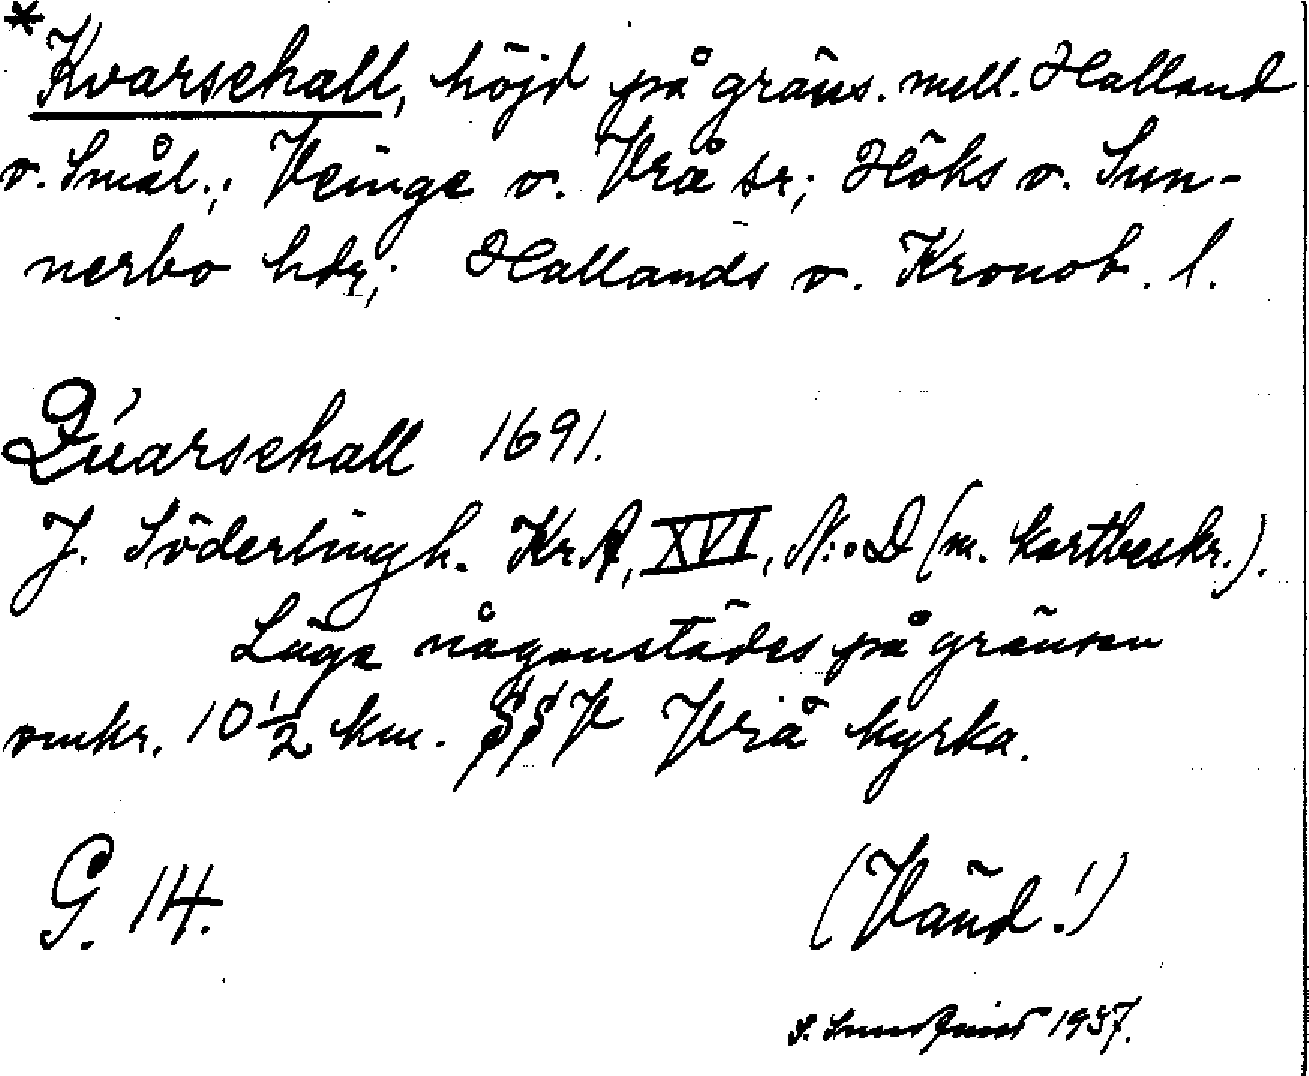 *Kvarschall, höjd på gräns. mell. Halland
o. Smål.; Veinge o. Vrå sr; Höks o. Sun-
nerbo hdr; Hallands o. Kronob. l.
Quarschall 1691.
J. Söderlingh. Kr.A, XVI, N:o D (m. kartbeskr.).
Läge någonstädes på gränsen
omkr. 10 1/2 km. SSV Vrå kyrka.
G. 14.
(Vänd!)
S. 1937.